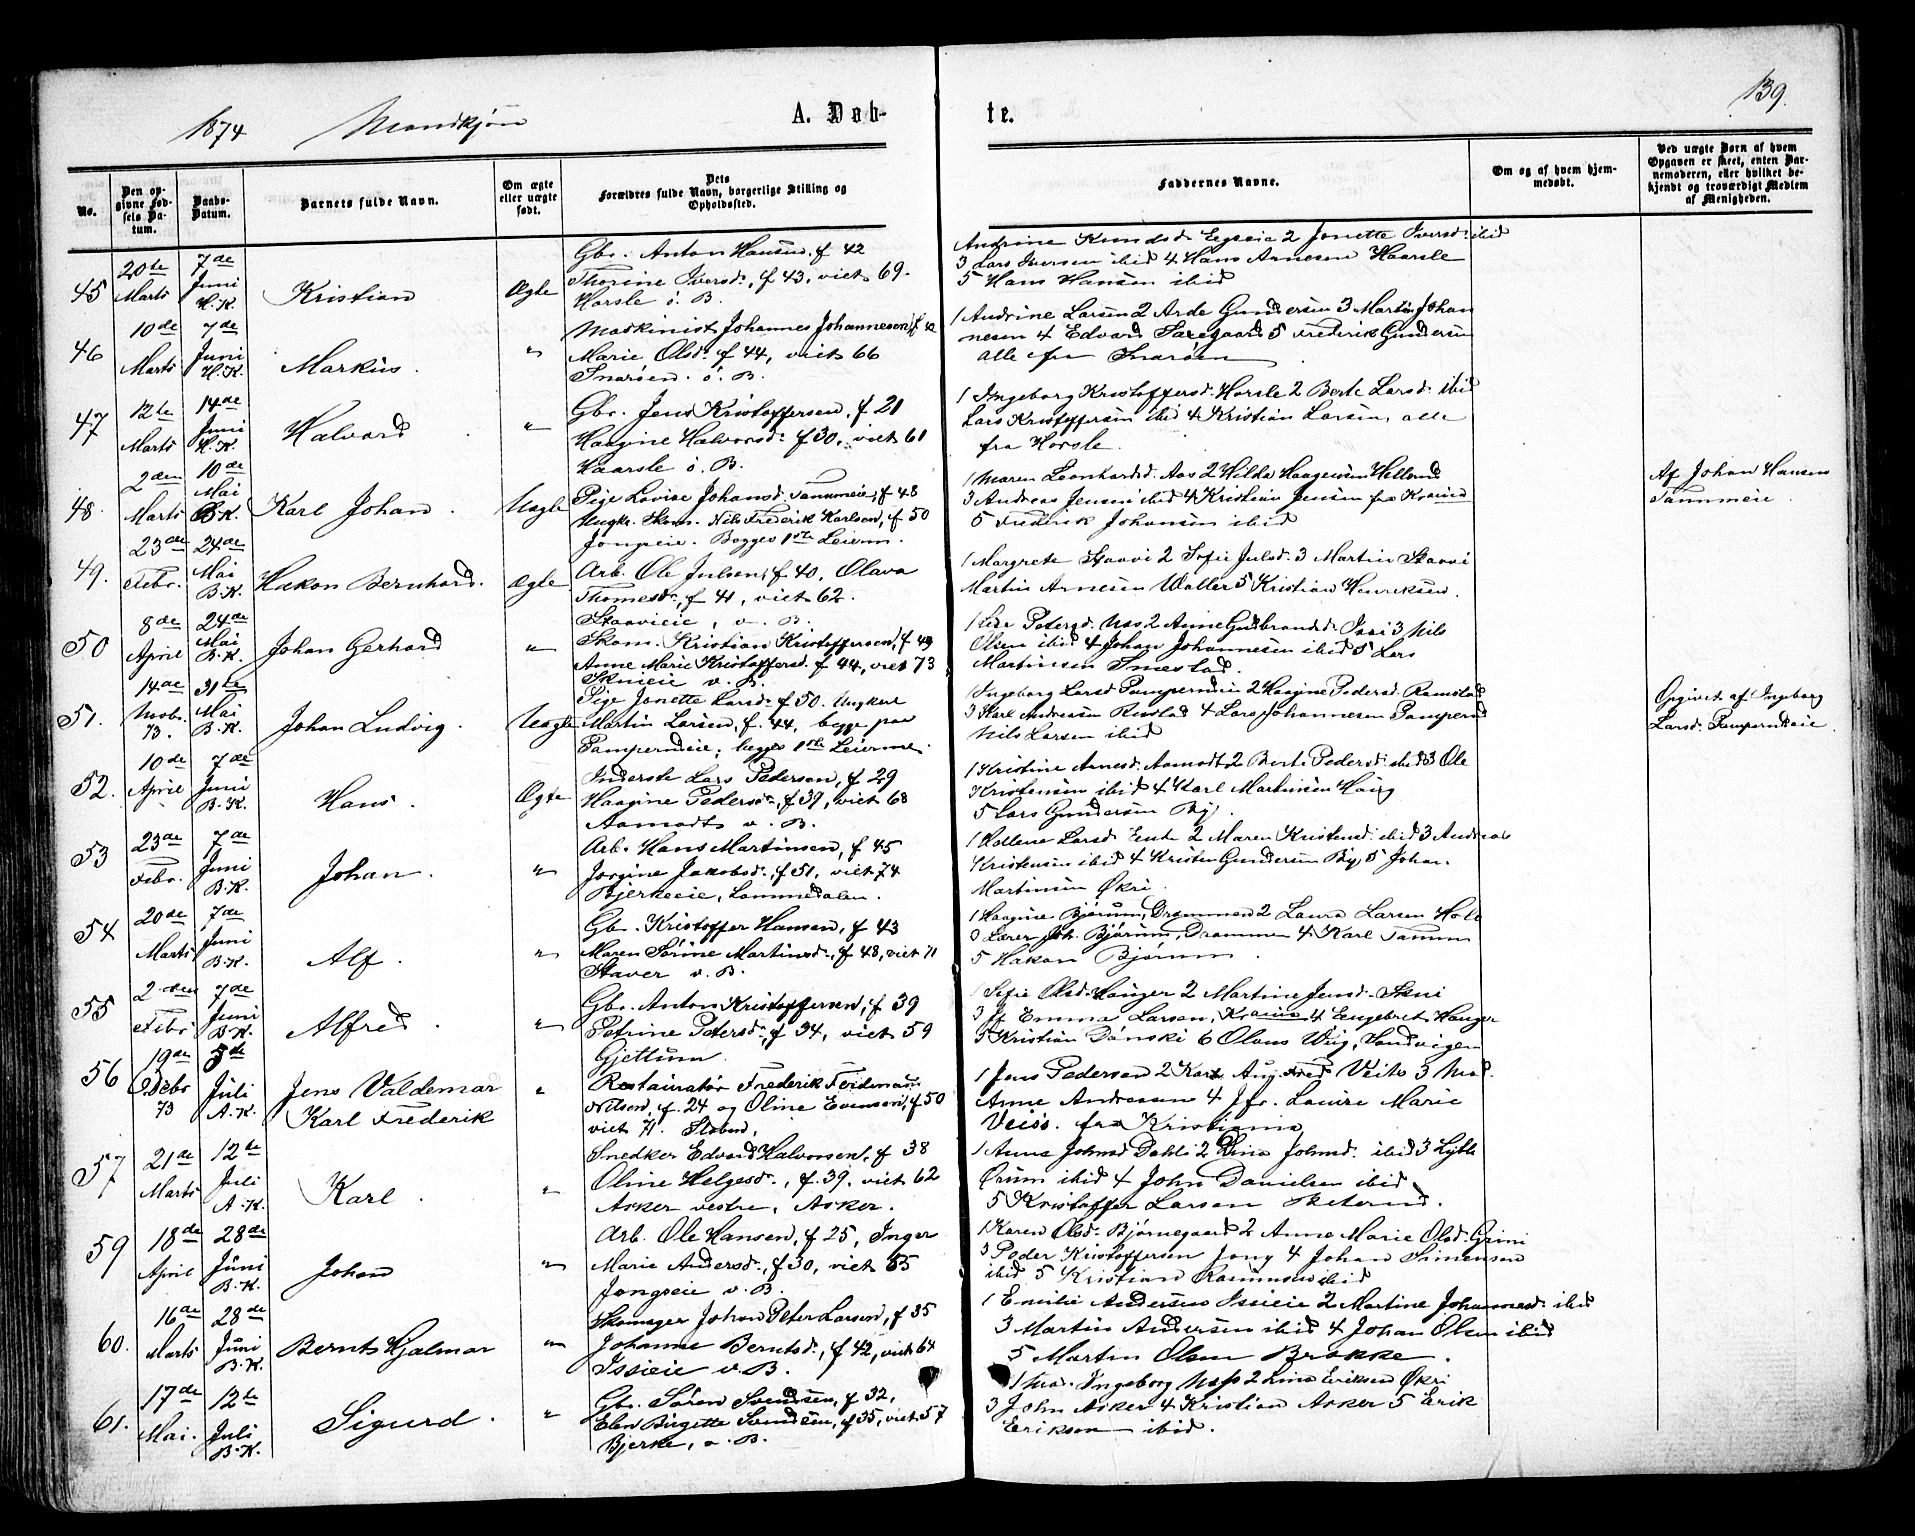 1874 Mandkjøn A. Døb-
te. 139.
No.
Den opgivne Fødsels Datum.
Daabs-Datum.
Barnets fulde Navn.
Om ægte eller uægte født.
Dets Forældres fulde Navn, borgerlige Stilling og Opholdssted.
Faddernes Navne.
Om og af hvem hjemmedøbt.
Ved uægte Børn af hvem Opgaven er skeet, enten Barnemoderen, eller hvilket bekjendt og troværdigt Medlem af Menigheden.
45 20te Marts 7de Juni H.K. Kristian Ægte
Gbr. Anton Hansen, f 42
Thorine Iversd., f 43, viet 69.
Horsle ø. B.
Andrine Knudsd. 2 Jonette Iversd. ibid
3 Lars Iversen ibid 4 Hans Arnesen Haarsle
5 Hans Hansen ibid
46 10de Marts 7de Juni H.K. Markus. "
Maskinist Johannes Johannesen, f 42
Marie Olsd. f 44, viet 66
Snarøen. ø. B.
1 Andrine Larsen 2 Arde Gundersen 3 Martin Johan
nesen 4 Edvard 5 Frederik Gundersen
alle fra Snarøen
47 12te Marts 14de Juni H.K. Halvard "
Gbr. Jens Kristoffersen, f 21
Haagine Halvorsd. f 30, viet 61
Haarsle ø. B.
1 Ingeborg Kristoffersd. Horsle 2 Berte Larsd. ibid
Lars Kristoffersen ibid 4 Kristian Larsen, alle
fra Horsle.
48. 2den Marts 10de Mai B.K. Karl Johan. Uægte
Pige Lovise Johansd. Tanumeie, f 48
Ungkr. Skom. Nils Frederik Karlsen, f 50
Jongseie. Begges 1ste Leierm.
1 Maren Leonhardsd. Aas 2 Hilda Haagensen Helland
3 Andreas Jensen ibid 4 Kristian Jensen fra
5 Frederik Johansen ibid
Af Johan Hansen
Tanumeie.
49. 23de Febr. 24de Mai B.K. Hakon Bernhard. Ægte
Arb. Ole Julsen, f 40, Olava
Thomesd., f 41, viet 62.
Staavieie, v. B.
1 Margrete Staavi 2 Sofie Julsd. 3 Martin Staavi
Martin Arnesen Waller 5 Kristian Henriksen.
50 8de April 24de Mai B.K. Johan Gerhard "
Skom. Kristian Kristoffersen, f 49
Anne Marie Kristoffersd. f 44, viet 73
v. B.
1 Lise Petersd. Næs 2 Anne Gulbrandsd. 3 Nils
Olsen ibid 4 Johan Johannesen ibid 5 Lars
Martinsen Smestad.
51. 14de Nobr. 73. 31te Mai B.K. Johan Ludvig. Uægte
Pige Jonette Larsd. f 50. Ungkarl
Martin Larsen, f. 44, begge paa
Pamperudeie; begges 1ste Leierm.
1 Ingeborg Larsd. 2 Haagine Pedersd. Ramstad
3 Karl Andreasen Rustad 4 Lars Johannesen
Nils Larsen ibid
Opgivet af Ingeborg
Larsd.
52. 10de April 7de Juni B.K. Hans. Ægte
Inderste Lars Pedersen, f 29
Haagine Pedersd., f 39, viet 68
Aamodt v. B.
1 Kristine Arnesd. Aamodt 2 Berte Pedersd. ibid 3 Ole
Kristensen ibid 4 Karl Martinsen Haug
5 Lars Gundersen By.
53 23de Febr. 7de Juni B.K. Johan. "
Arb. Hans Martinsen, f 45
Jørgine Jakobsd., f 51, viet 74
Bjerkeeie, Lommedalen.
1 Larsd. 2 Maren Kristensd. ibid 3 Andreas
Kristensen ibid 4 Kristen Gundersen By, 5 Johan
Martinsen Økri.
54 20de Marts 7de Juni B.K. Alf. "
Gb. Kristoffer Hansen, f 43
Maren Sørine Martinsd., f 48, viet 71
Staver v. B.
1 Haagine Bjørum, Drammen 2 Laura Larsen
3 Lærer Joh. Bjørum, Drammen 4 Karl Tanum
5 Hakon Bjørum.
55 2den Febr. 7de Juni B.K. Alfred. "
Gbr. Anton Kristoffersen, f 39
Petrine Petersd., f 34, viet 59
Gjettum.
1 Sofie Olsd. Hauger 2 Martine Jensd. Skui
3 Jf Emma Larsen, 4 Engebret Hauger
5 Kristian Dønski 6 Olaus Wiig, Sandvigen
56 19de Debr 73 5te Juli A.K. Jens Valdemar
Karl Frederik "
Restauratør Frederik Ferdinand
Nilsen, f. 24 og Oline Evensen, f 50
viet 71. Slabend.
1 Jens Pedersen 2 Karl Aug. Fred. Veits 3 Mad.
Anne Andresen 4 Jfr. Louise Marie
Veiss. fra Kristiania
57 21de Marts 12te Juli A.K. Karl. "
Snedker Edvard Halvorsen, f 38
Oline Helgesd., f 39, viet 62
Asker vestre, Asker.
1 Anne Johnsd Dahli 2 Lina Johnsd. ibid 3
ibid 4 John Danielsen ibid
5 Kristoffer Larsen
59 18de April 28de Juni B.K. Johan "
Arb. Ole Hansen, f 25, Inger
Marie Andersd., f 30, viet 55
Jongseie v. B.
1 Karen Olsd. Bjørnegaard 2 Anne Marie Olsd. Grini
3 Peder Kristoffersen Jong 4 Johan Simensen
ibid 5 Kristian Rasmussen ibid
60. 16de Marts 28de Juni B.K. Bernt Hjalmar "
Skomager Johan Peter Larsen, f 35
Johanne Berntsd., f 42, viet 64
Issieie v. B.
1 Emilie Andersen Issieie 2 Martine Johannesd. ibid
3 Martin Andersen ibid 4 Johan Olsen ibid
5 Martin Olsen Brække.
61. 17de Mai. 12te Juli B.K. Sigurd. "
Gbr. Søren Svendsen, f 32,
Elen Birgitte Svendsen, f 35, viet 57
Bjerke, v. B.
1 Mad. Ingeborg Næss 2 Lina Eriksen Økri
3 John Asker 4 Kristian Asker 5 Erik
Erikson ibid.